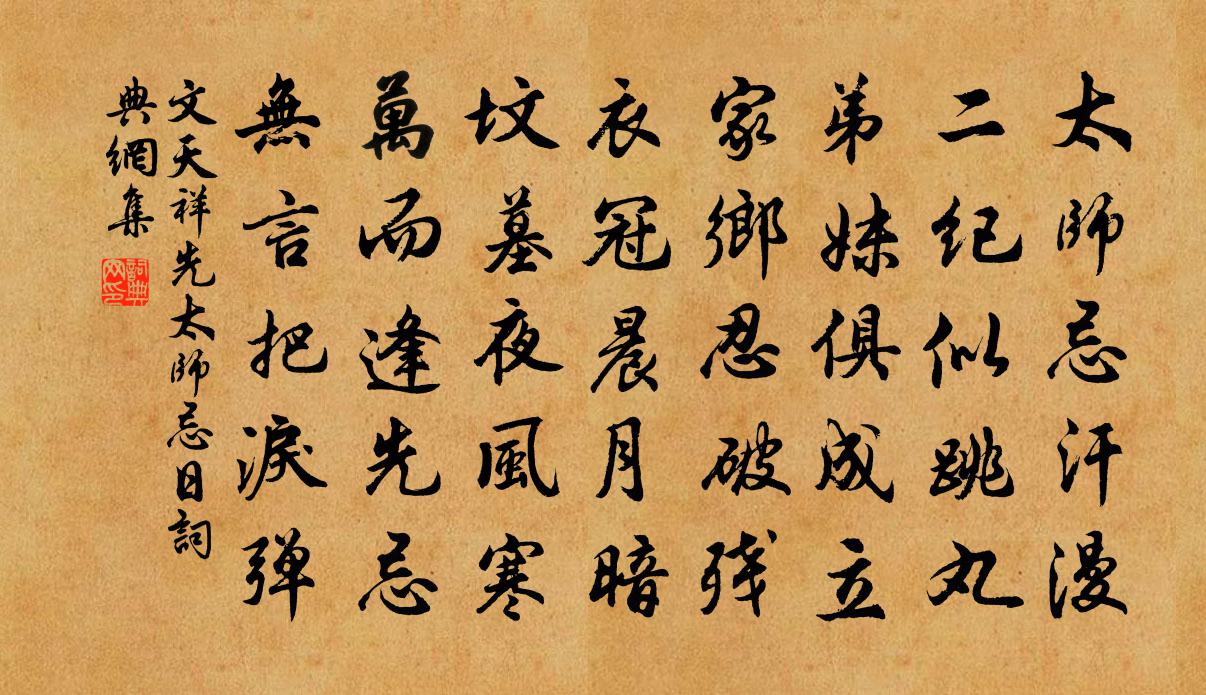 太師忌汗漫
二紀似跳丸
弟妹俱成立
家鄉忍破殘
衣冠晨月暗
坟墓夜風寒
萬而逢先忌
無言把淚弹
文天祥先太師忌日詞
典網集
詞典网印